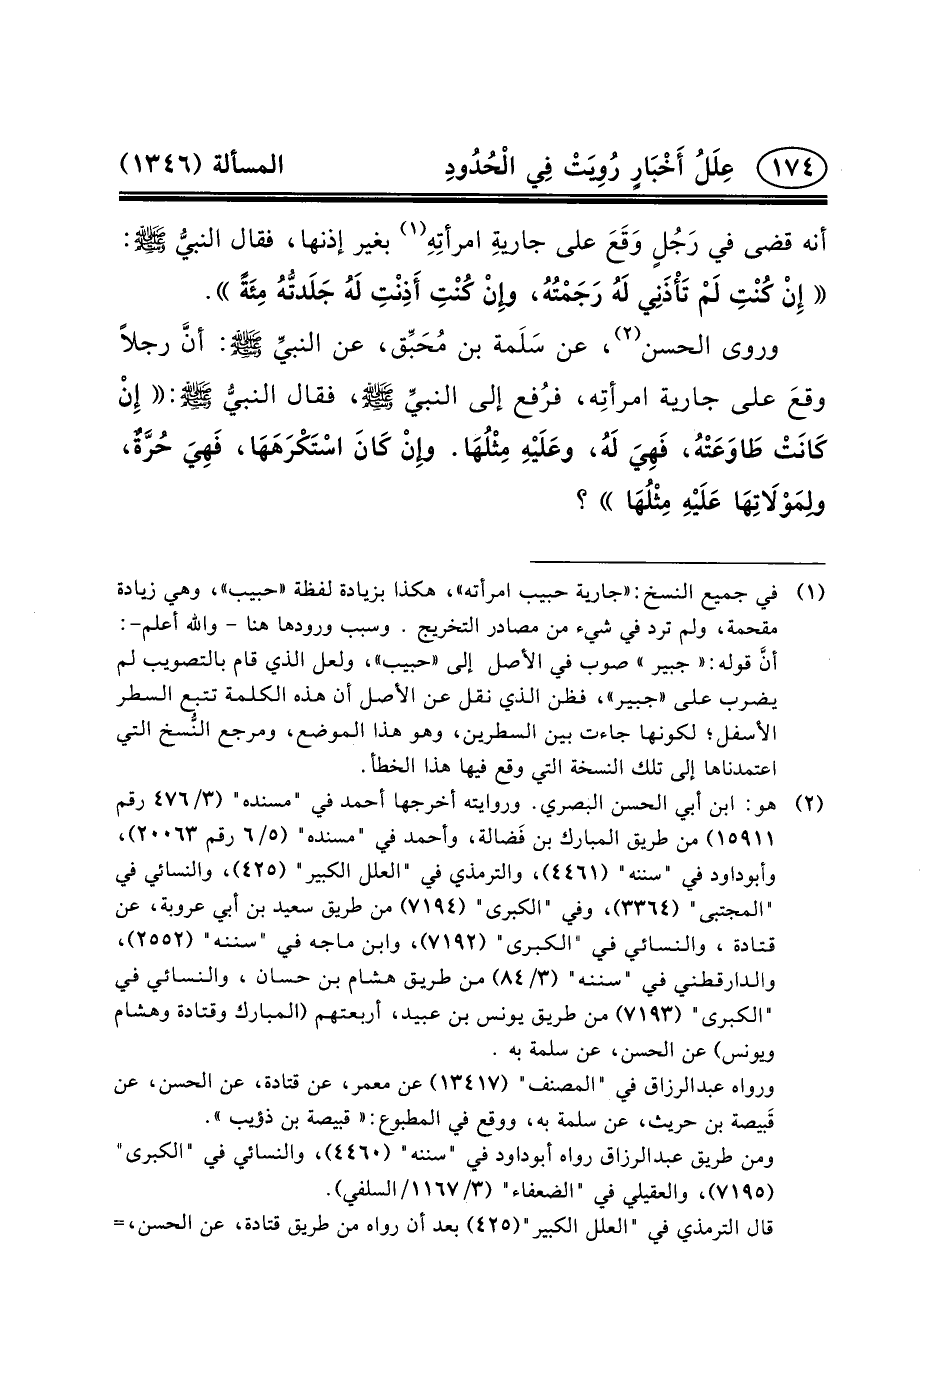 ١٧٤ عِلَلُ أَخْبَارٍ رُوِيَتْ فِي الْحُدُودِ المسألة (١٣٤٦)
أنه قضى في رَجُلٍ وَقَعَ على جاريةِ امرأتِهِ(١) بغير إذنها، فقال النبيُّ ﷺ:
« إِنْ كُنْتِ لَمْ تَأْذَنِي لَهُ رَجَمْتُهُ، وإِنْ كُنْتِ أَذِنْتِ لَهُ جَلَدتُّهُ مِئَةً ».
وروى الحسن(٢)، عن سَلَمة بن مُحَبِّق، عن النبيِّ ﷺ: أنَّ رجلاً
وقعَ على جارية امرأتِه، فرُفع إلى النبيِّ ﷺ، فقال النبيُّ ﷺ:« إِنْ
كَانَتْ طَاوَعَتْهُ، فَهِيَ لَهُ، وعَلَيْهِ مِثْلُهَا. وإِنْ كَانَ اسْتَكْرَهَهَا، فَهِيَ حُرَّةٌ،
ولِمَوْلَاتِهَا عَلَيْهِ مِثْلُهَا » ؟
(١) في جميع النسخ:«جارية حبيب امرأته»، هكذا بزيادة لفظة «حبيب»، وهي زيادة
مقحمة، ولم ترد في شيء من مصادر التخريج . وسبب ورودها هنا - والله أعلم-:
أنَّ قوله:« جبير » صوب في الأصل إلى «حبيب»، ولعل الذي قام بالتصويب لم
يضرب على «جبير»، فظن الذي نقل عن الأصل أن هذه الكلمة تتبع السطر
الأسفل؛ لكونها جاءت بين السطرين، وهو هذا الموضع، ومرجع النُّسخ التي
اعتمدناها إلى تلك النسخة التي وقع فيها هذا الخطأ.
(٢) هو: ابن أبي الحسن البصري. وروايته أخرجها أحمد في "مسنده" (٣/ ٤٧٦ رقم
١٥٩١١) من طريق المبارك بن فَضالة، وأحمد في "مسنده" (٥/ ٦ رقم ٢٠٠٦٣)،
وأبوداود في "سننه" (٤٤٦١)، والترمذي في "العلل الكبير" (٤٢٥)، والنسائي في
"المجتبى" (٣٣٦٤)، وفي "الكبرى" (٧١٩٤) من طريق سعيد بن أبي عروبة، عن
قتادة ، والنسائي في "الكبرى" (٧١٩٢)، وابن ماجه في "سننه" (٢٥٥٢)،
والدارقطني في "سننه" (٣/ ٨٤) من طريق هشام بن حسان ، والنسائي في
"الكبرى" (٧١٩٣) من طريق يونس بن عبيد، أربعتهم (المبارك وقتادة وهشام
ويونس) عن الحسن، عن سلمة به .
ورواه عبدالرزاق في "المصنف" (١٣٤١٧) عن معمر، عن قتادة، عن الحسن، عن
قَبيصة بن حريث، عن سلمة به، ووقع في المطبوع:« قبيصة بن ذؤيب ».
ومن طريق عبدالرزاق رواه أبوداود في "سننه" (٤٤٦٠)، والنسائي في "الكبرى"
(٧١٩٥)، والعقيلي في "الضعفاء" (٣/ ١١٦٧/ السلفي).
قال الترمذي في "العلل الكبير"(٤٢٥) بعد أن رواه من طريق قتادة، عن الحسن،=